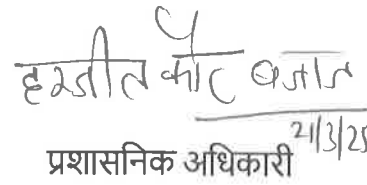 हरजीत कौर बजाज
21/3/25
प्रशासनिक अधिकारी